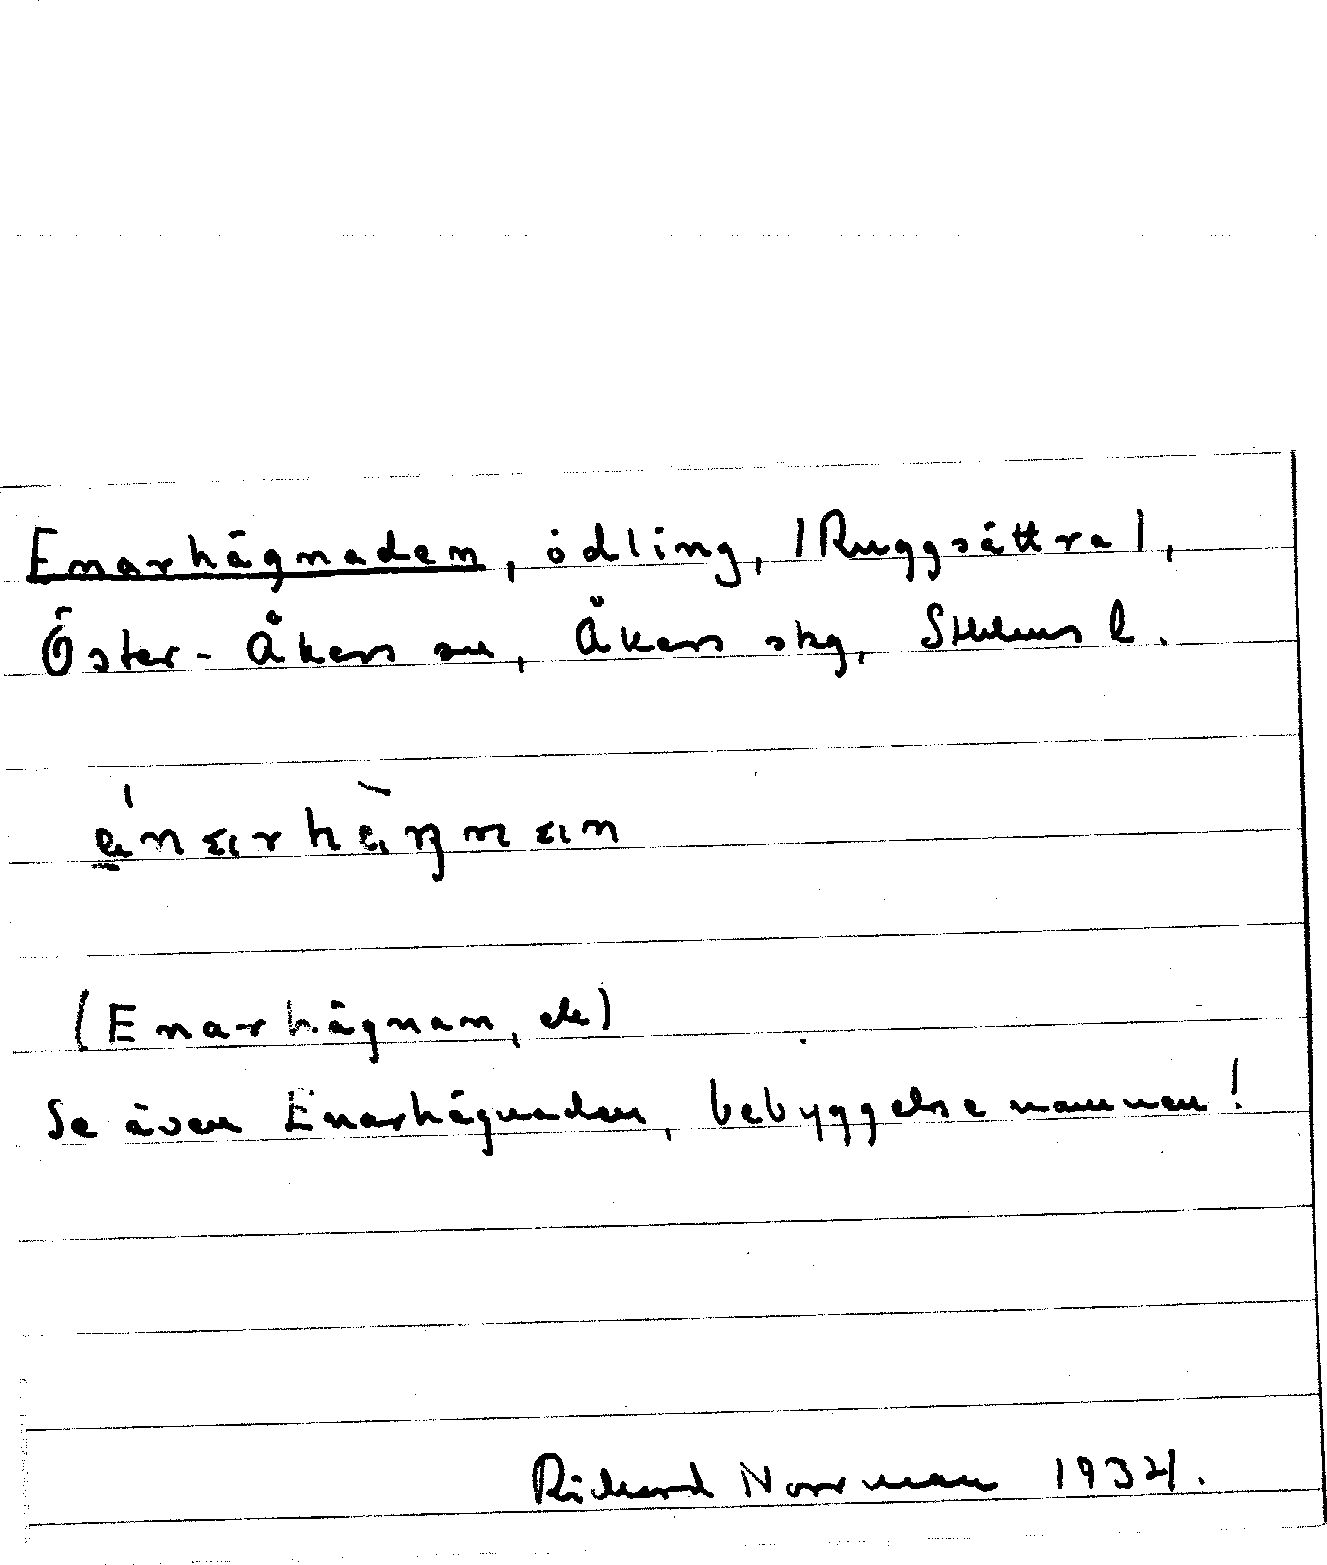 Enarhägnaden, odling, /Ruggsättra/,
Öster-Åkers sn, Åkers skg, Sthlms l.
(Enarhägnan, de)
Se även Enarhägnaden, bebyggelsenamnen!
Rickard Norrman 1934.